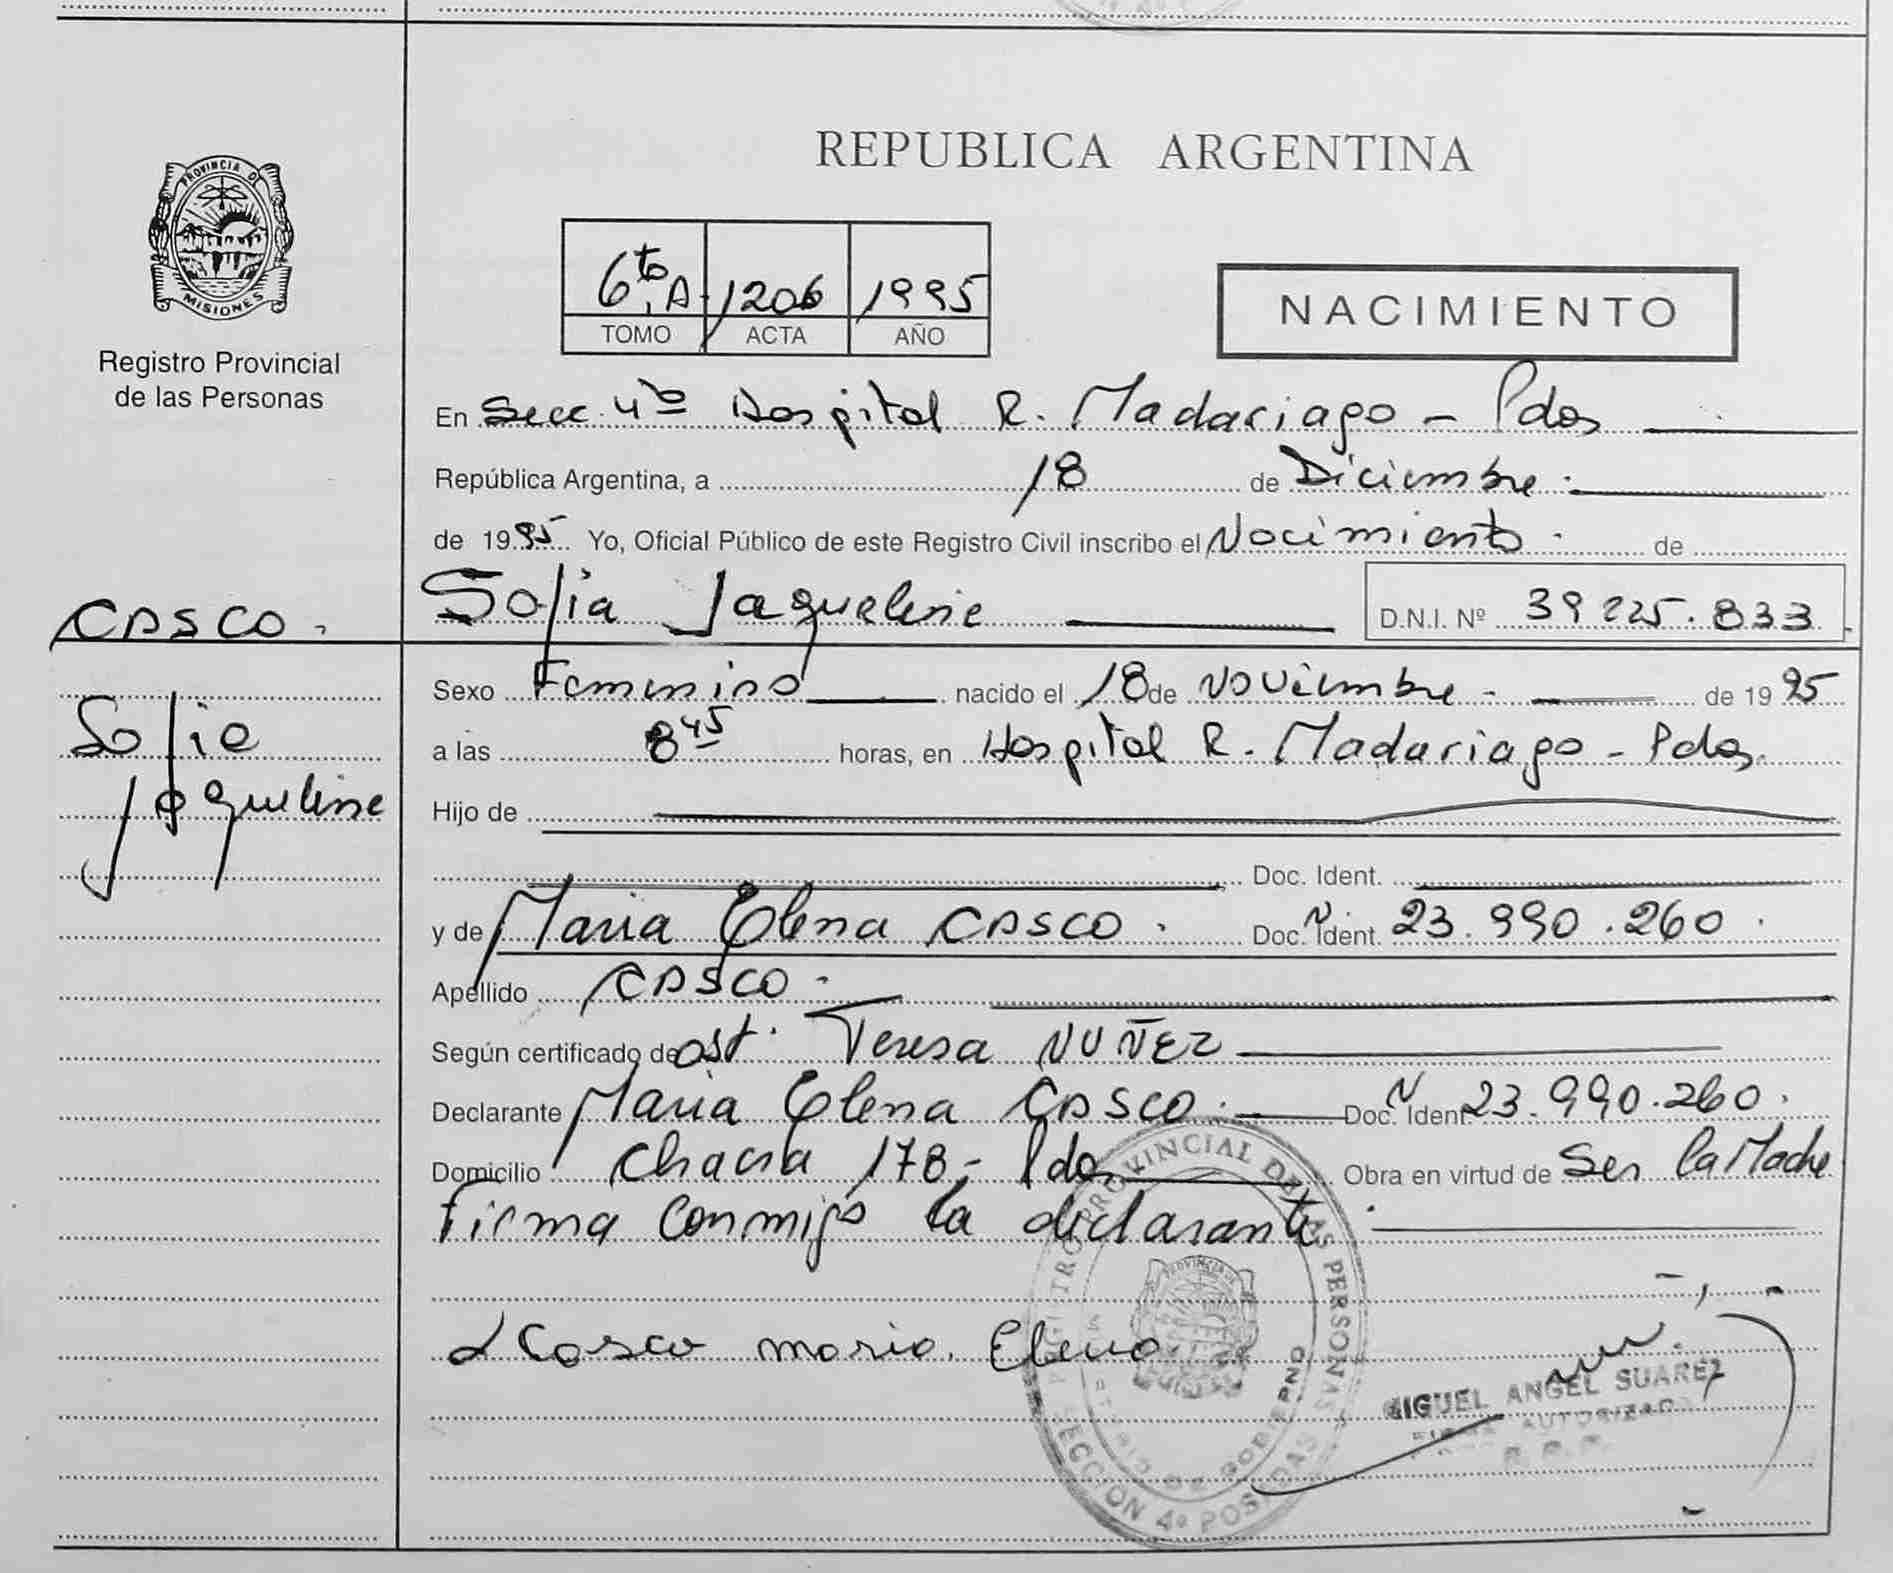 REPUBLICA ARGENTINA
PROVINCIA DE
MISIONES
Registro Provincial
de las Personas
6to A 1206 1995
TOMO ACTA AÑO
NACIMIENTO
En Secc. 4ta Hospital R. Madariaga - Pdas
República Argentina, a 18 de Diciembre.
de 1995 Yo, Oficial Público de este Registro Civil inscribo el Nacimiento. de
CASCO.
Sofia Jaqueline
D.N.I. Nº 39 225.833
Sofia
Jaqueline
Sexo Femenino nacido el 18 de Noviembre - de 1995
a las 8 45 horas, en Hospital R. Madariaga - Pdas.
Hijo de
Doc. Ident.
y de Maria Elena CASCO. Doc. Ident. Nº 23.990.260.
Apellido CASCO.
Según certificado de Ost. Teresa NUÑEZ
Declarante Maria Elena CASCO. Doc. Ident. Nº 23.990.260.
Domicilio Chacra 178 - Pdas Obra en virtud de Ser la Madre
Firma conmigo la declarante.
Casco maria. Elena
REGISTRO PROVINCIAL DE LAS PERSONAS
PROVINCIA DE
DE GOBIERNO
SECCION 4º POSADAS
MIGUEL ANGEL SUAREZ
AUTORIZADO